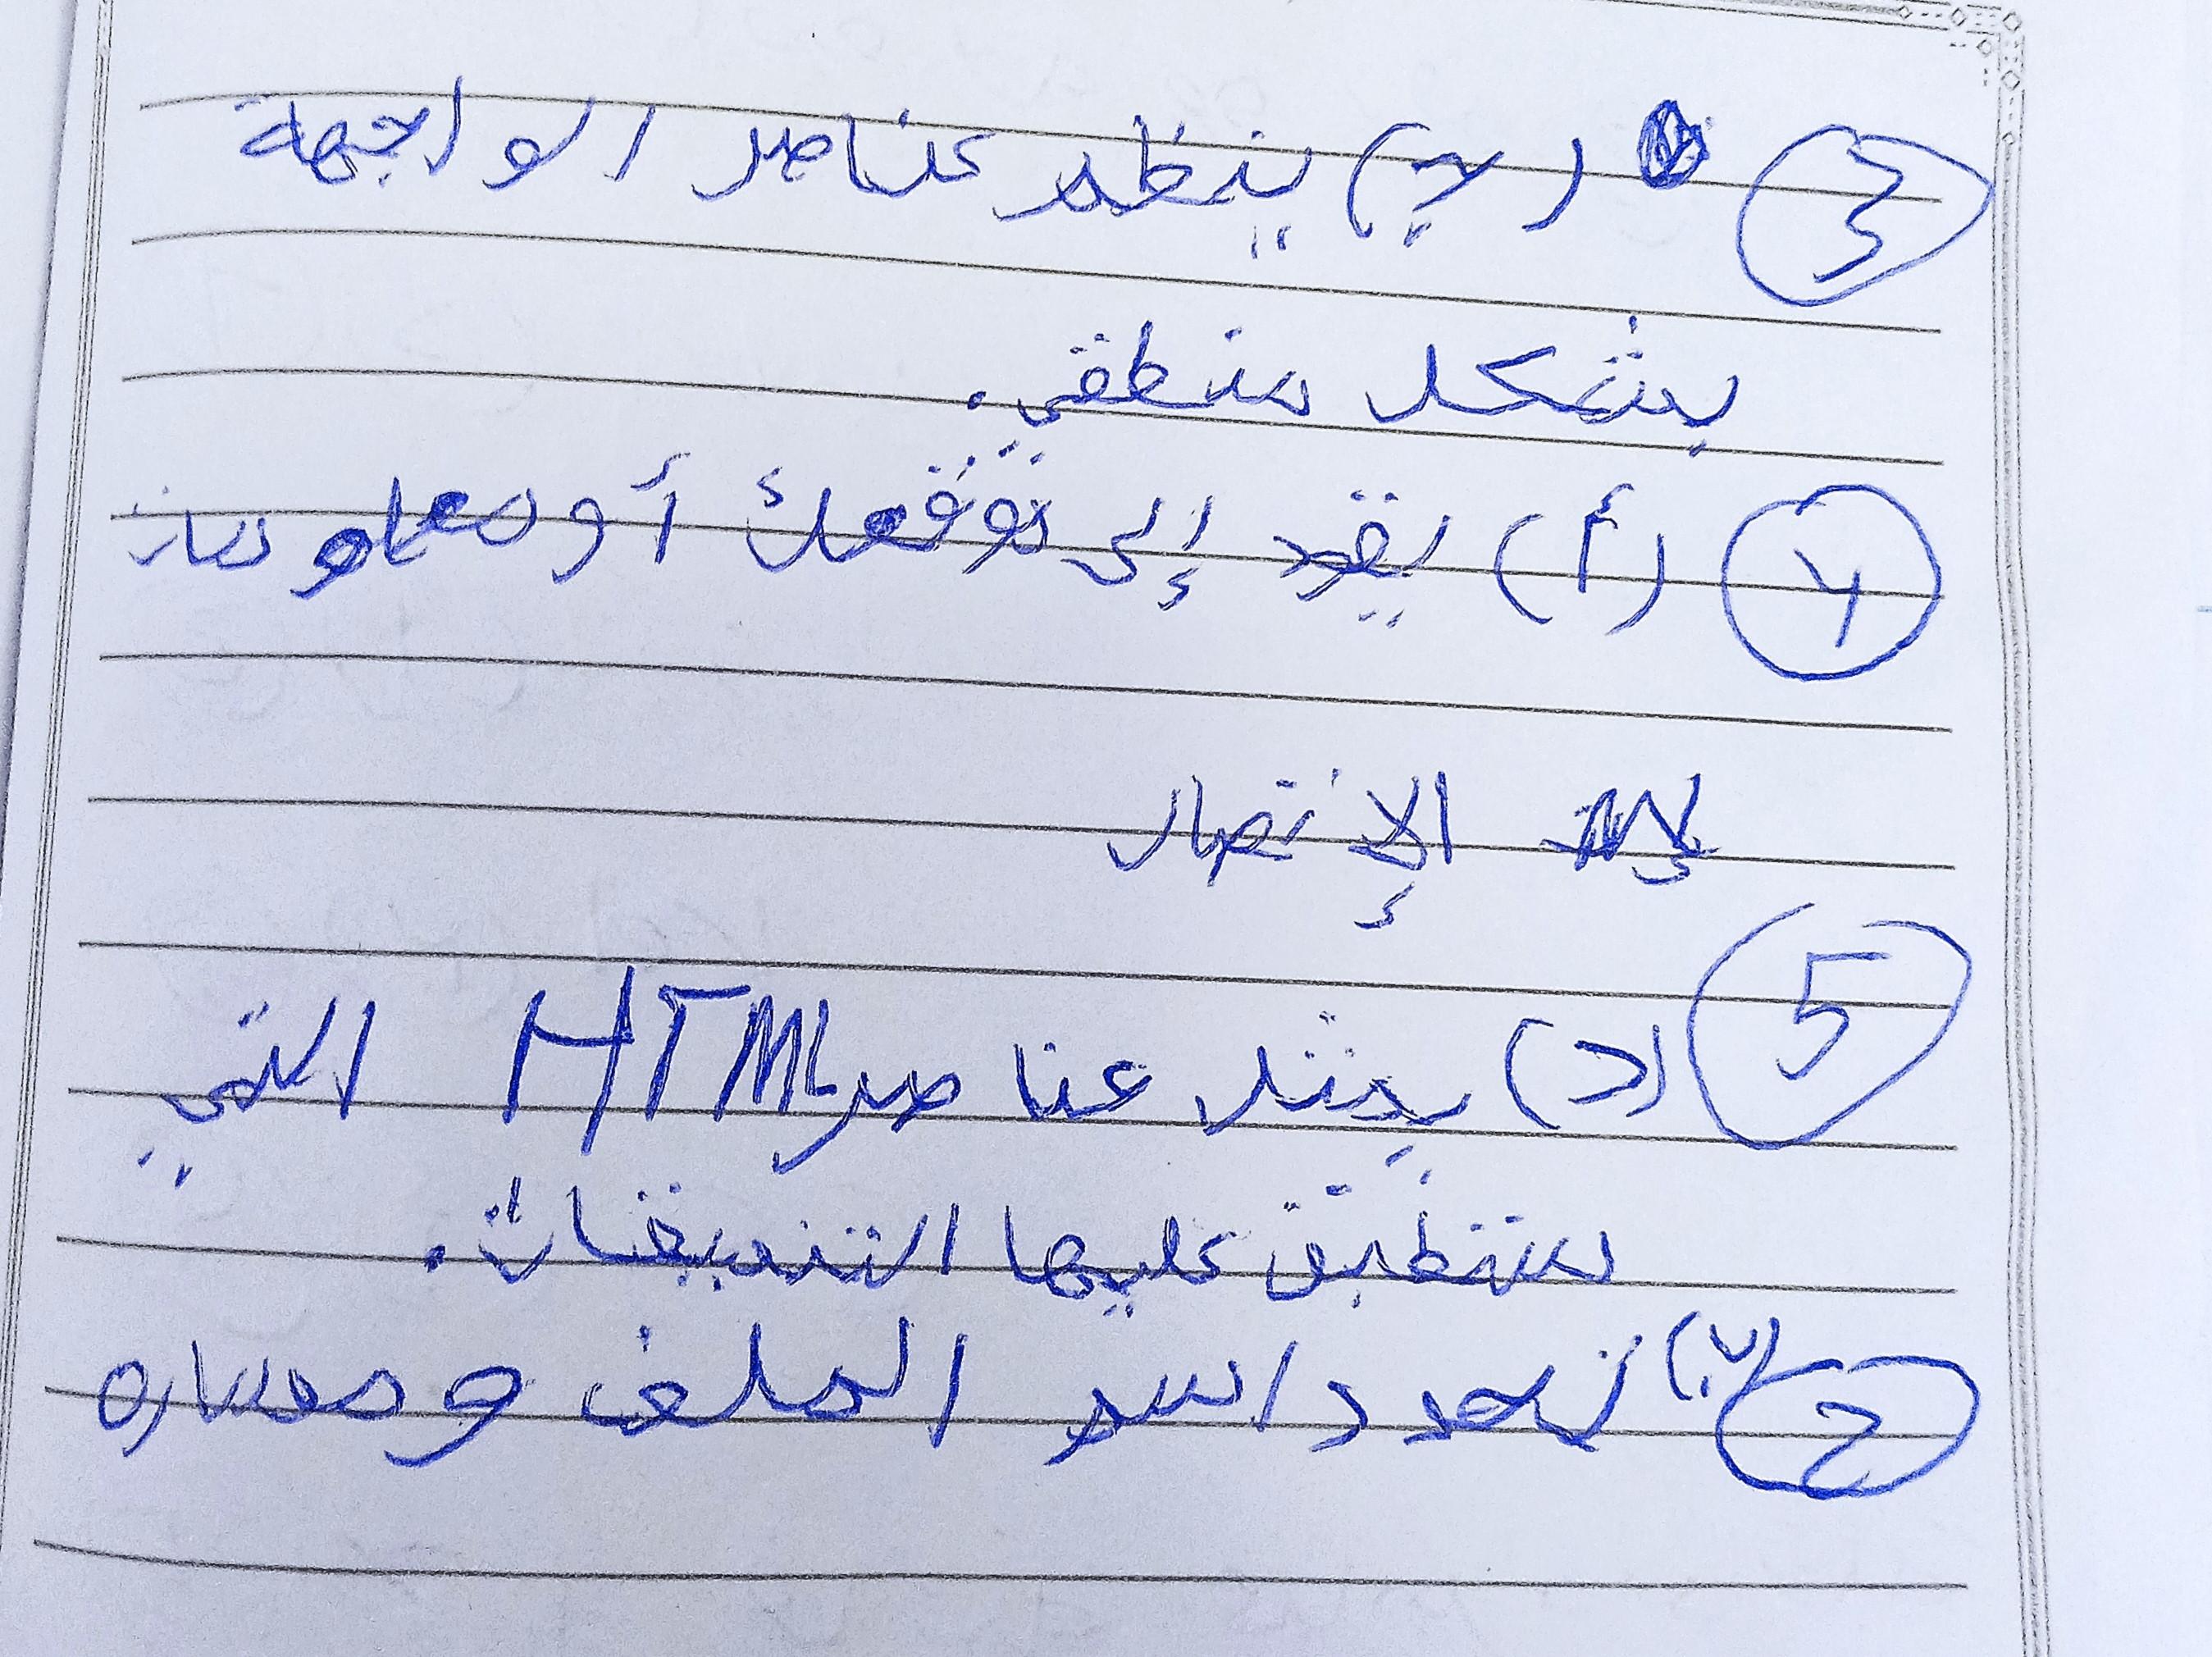 3 (ج) ينظم عناصر الواجهة
بشكل منطقي.
4 (أ) يقود إلى توقعك أو معلومات
الإنتصار
5 (د) يمثل عناصر HTML التي
ستطبق عليها التنسيقات.
2 (ب) لحدد اسم الملف ومساره